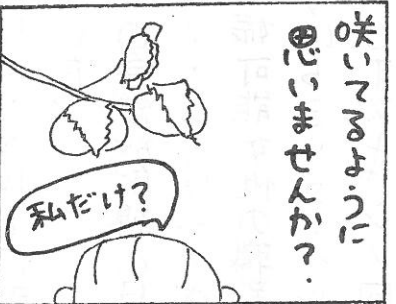 咲いてるように
思いませんか?
私だけ?